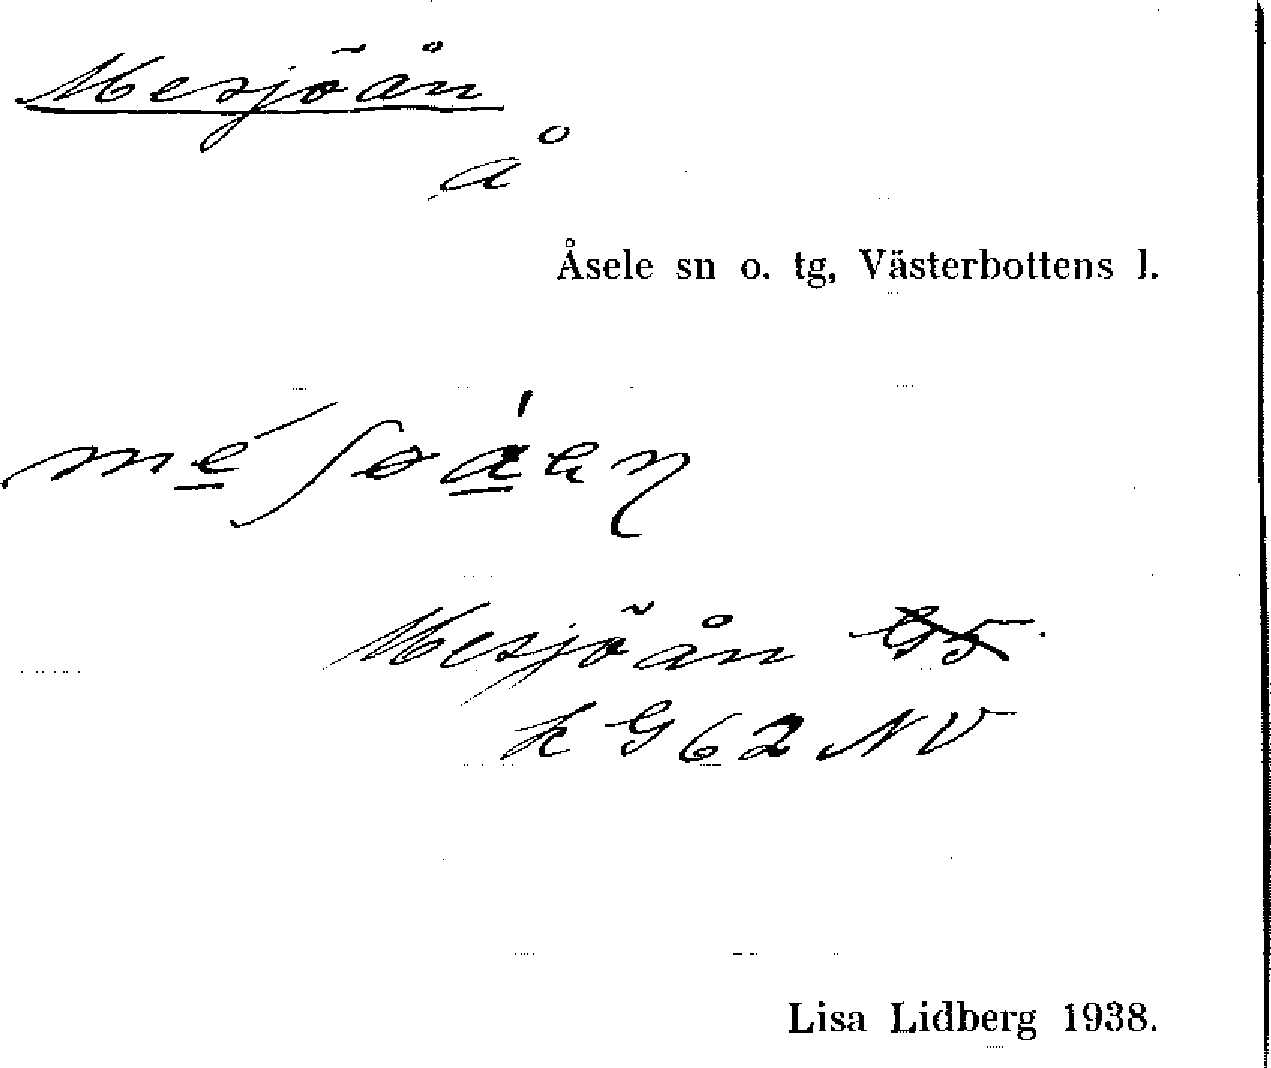 Mesjöån
å
Åsele sn o. tg, Västerbottens l.
Mesjöån
k G 62 NV
Lisa Lidberg 1938.